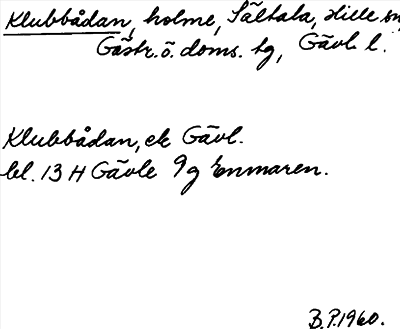 Klubbådan, holme, Sältala, Hille sn,
Gästr. ö. doms. tg, Gävl. l.
Klubbådan, ek Gävl.
bl. 13 H Gävle 9 g Enmaren.
B.P. 1960.